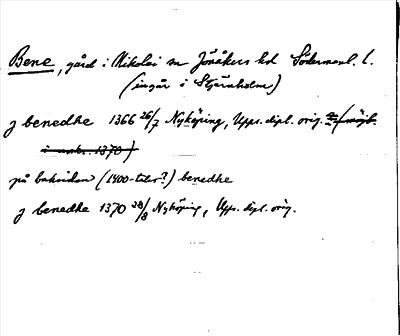 Bene, gård i Nikolai sn Jönåkers hd Södermanl. l.
(ingår i Stjärnholm)
j benedhe 1366 26/7 Nyköping, Upps. dipl. orig.
i avskr. 1370)
på baksidan (1400-talet?) benedhe
j benedhe 1370 28/8 Nyköping, Upps. dipl. orig.